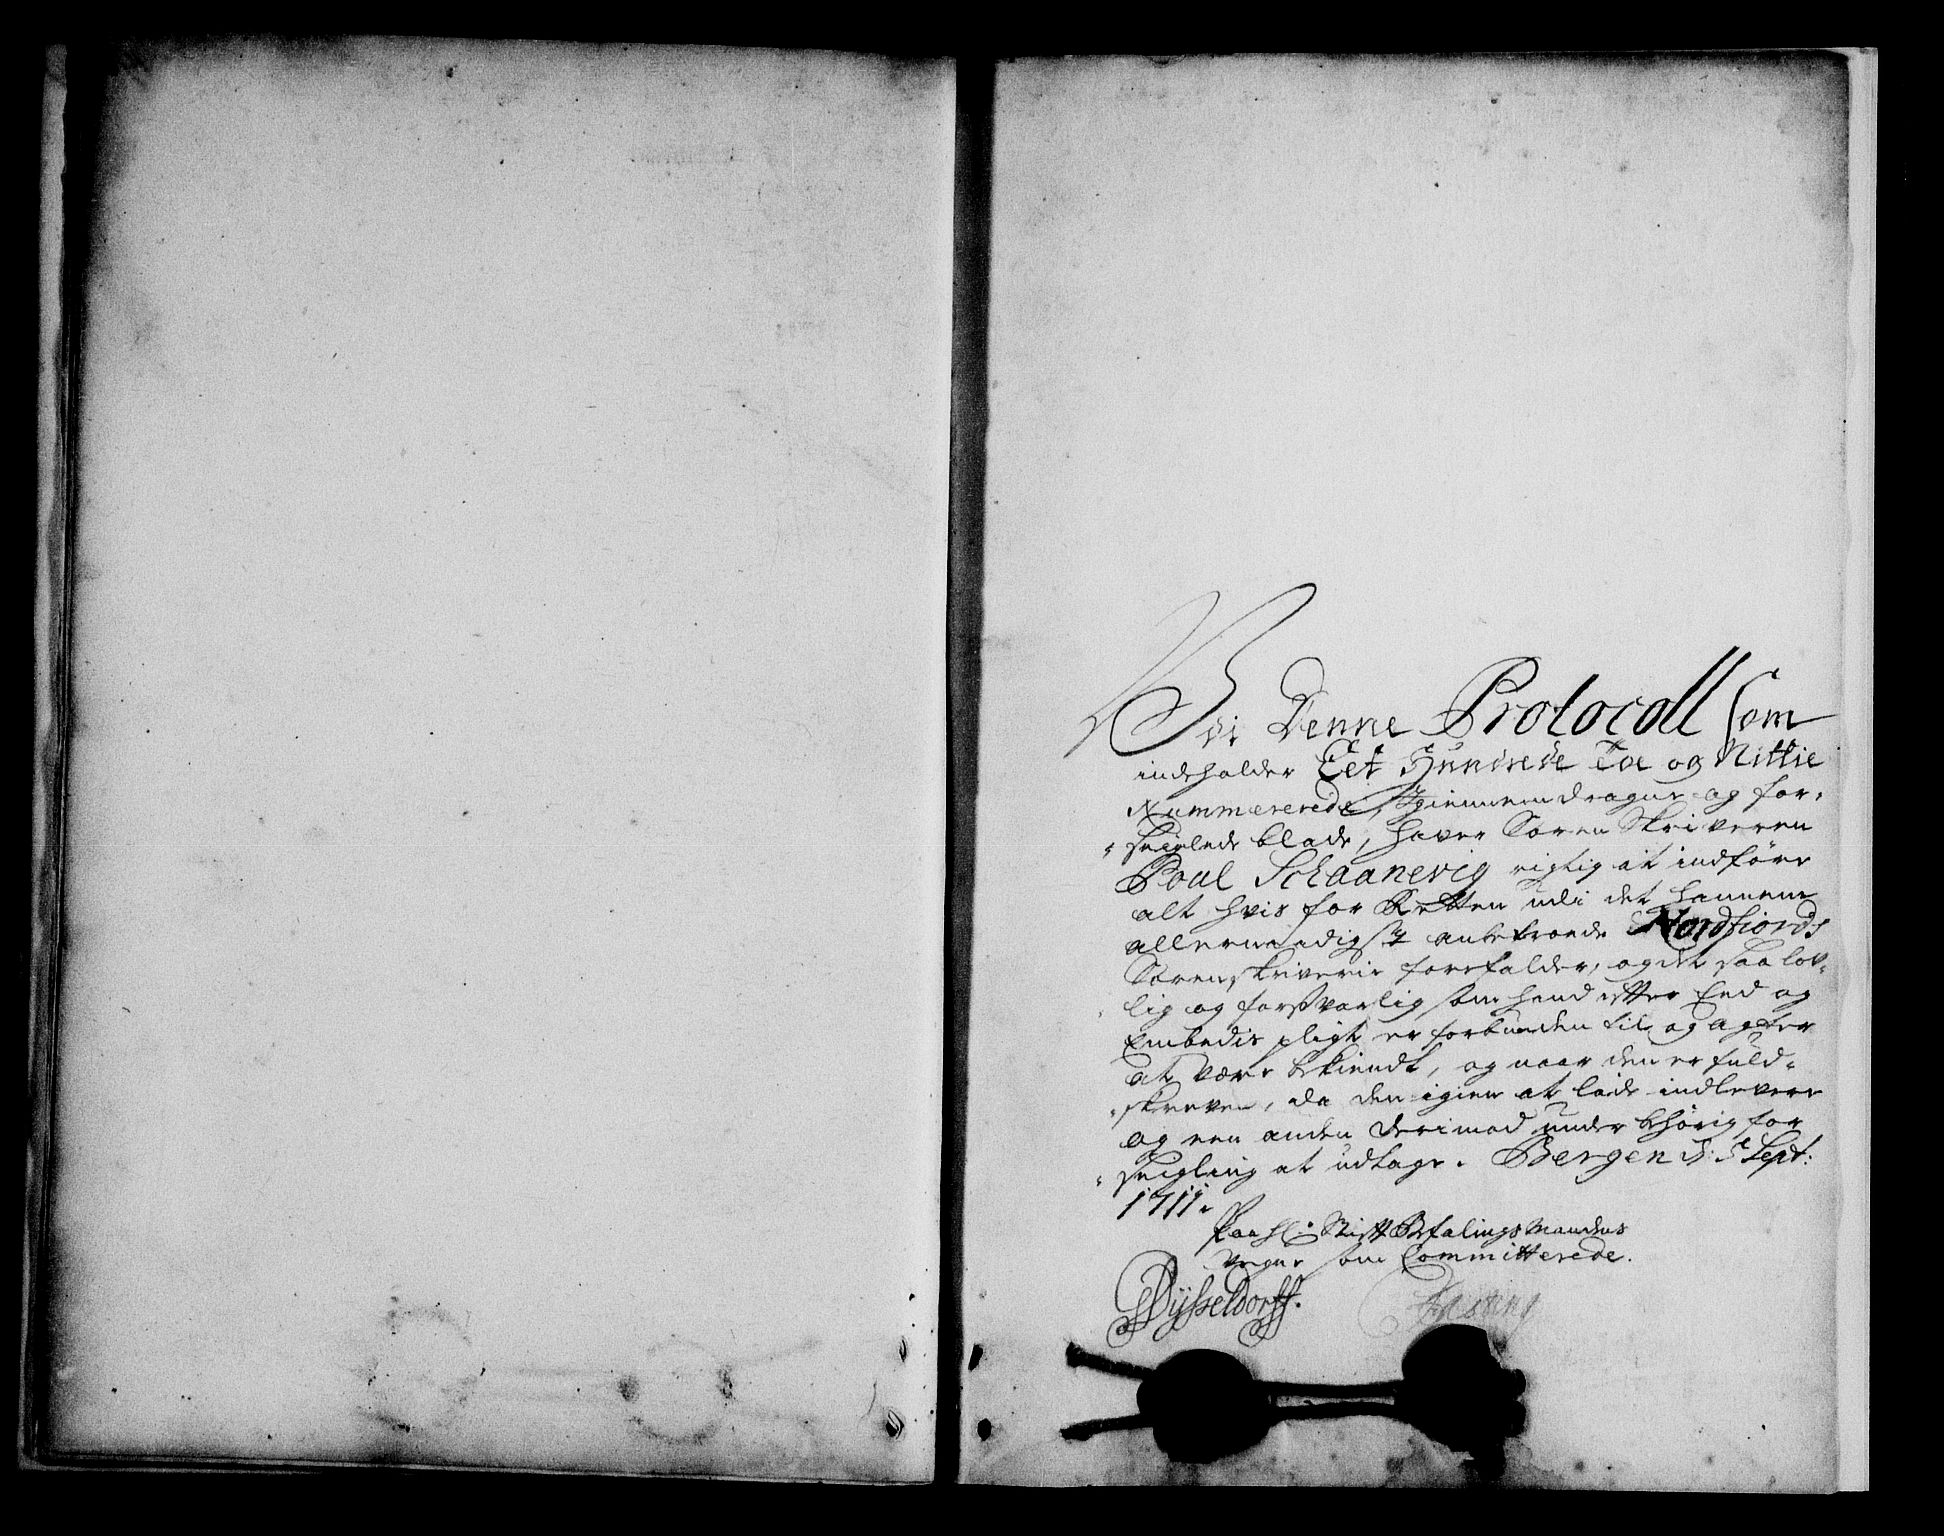 Udi Denne Protocoll Som
indeholder Eet Hundrede Toe og Nittie
Nummererede, Igiennemdragne og for-
seiglede blade, haver Soren Skriveren
Poul Schaanevig rigtig at indføre
alt hvis for Retten udi det hannem
allernaadigst anbetroede Nordfiords
Sorenskriverie forefalder, og det saa lov-
lig og forsvarlig som hand efter Eed og
Embedis pligt er forbunden til og agter
at være bekiendt, og naar den er fuld-
skreven, da den igien at lade indlevere
og een anden derimod under behørig for
seigling at udtage. Bergen d: 5 Sept:
1711.
Paa Hr: Stift Befalings Mandens
Vegne som Committerede.
Dÿsseldorff. Fasting